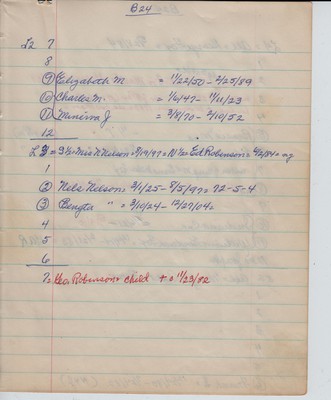 B24
L2 7
8
(9) Elizabeth M. = 11/22/50 - 2/25/89
(10) Charles M. = 1/6/47 - 11/11/23
(11) Minerva J = 2/8/70 - 2/10/52
12
L3 = 9½ = Mrs N Nelson = 8/19/47 = 10½ = Ed Robinson =
1
(2) Nels Nelson = 3/1/25 - 8/5/97 = 72-5-4
(3) Bengta " = 3/10/24 - 12/27/04 =
4
5
6
7 = Geo. Robinson = child + = 11/23/82